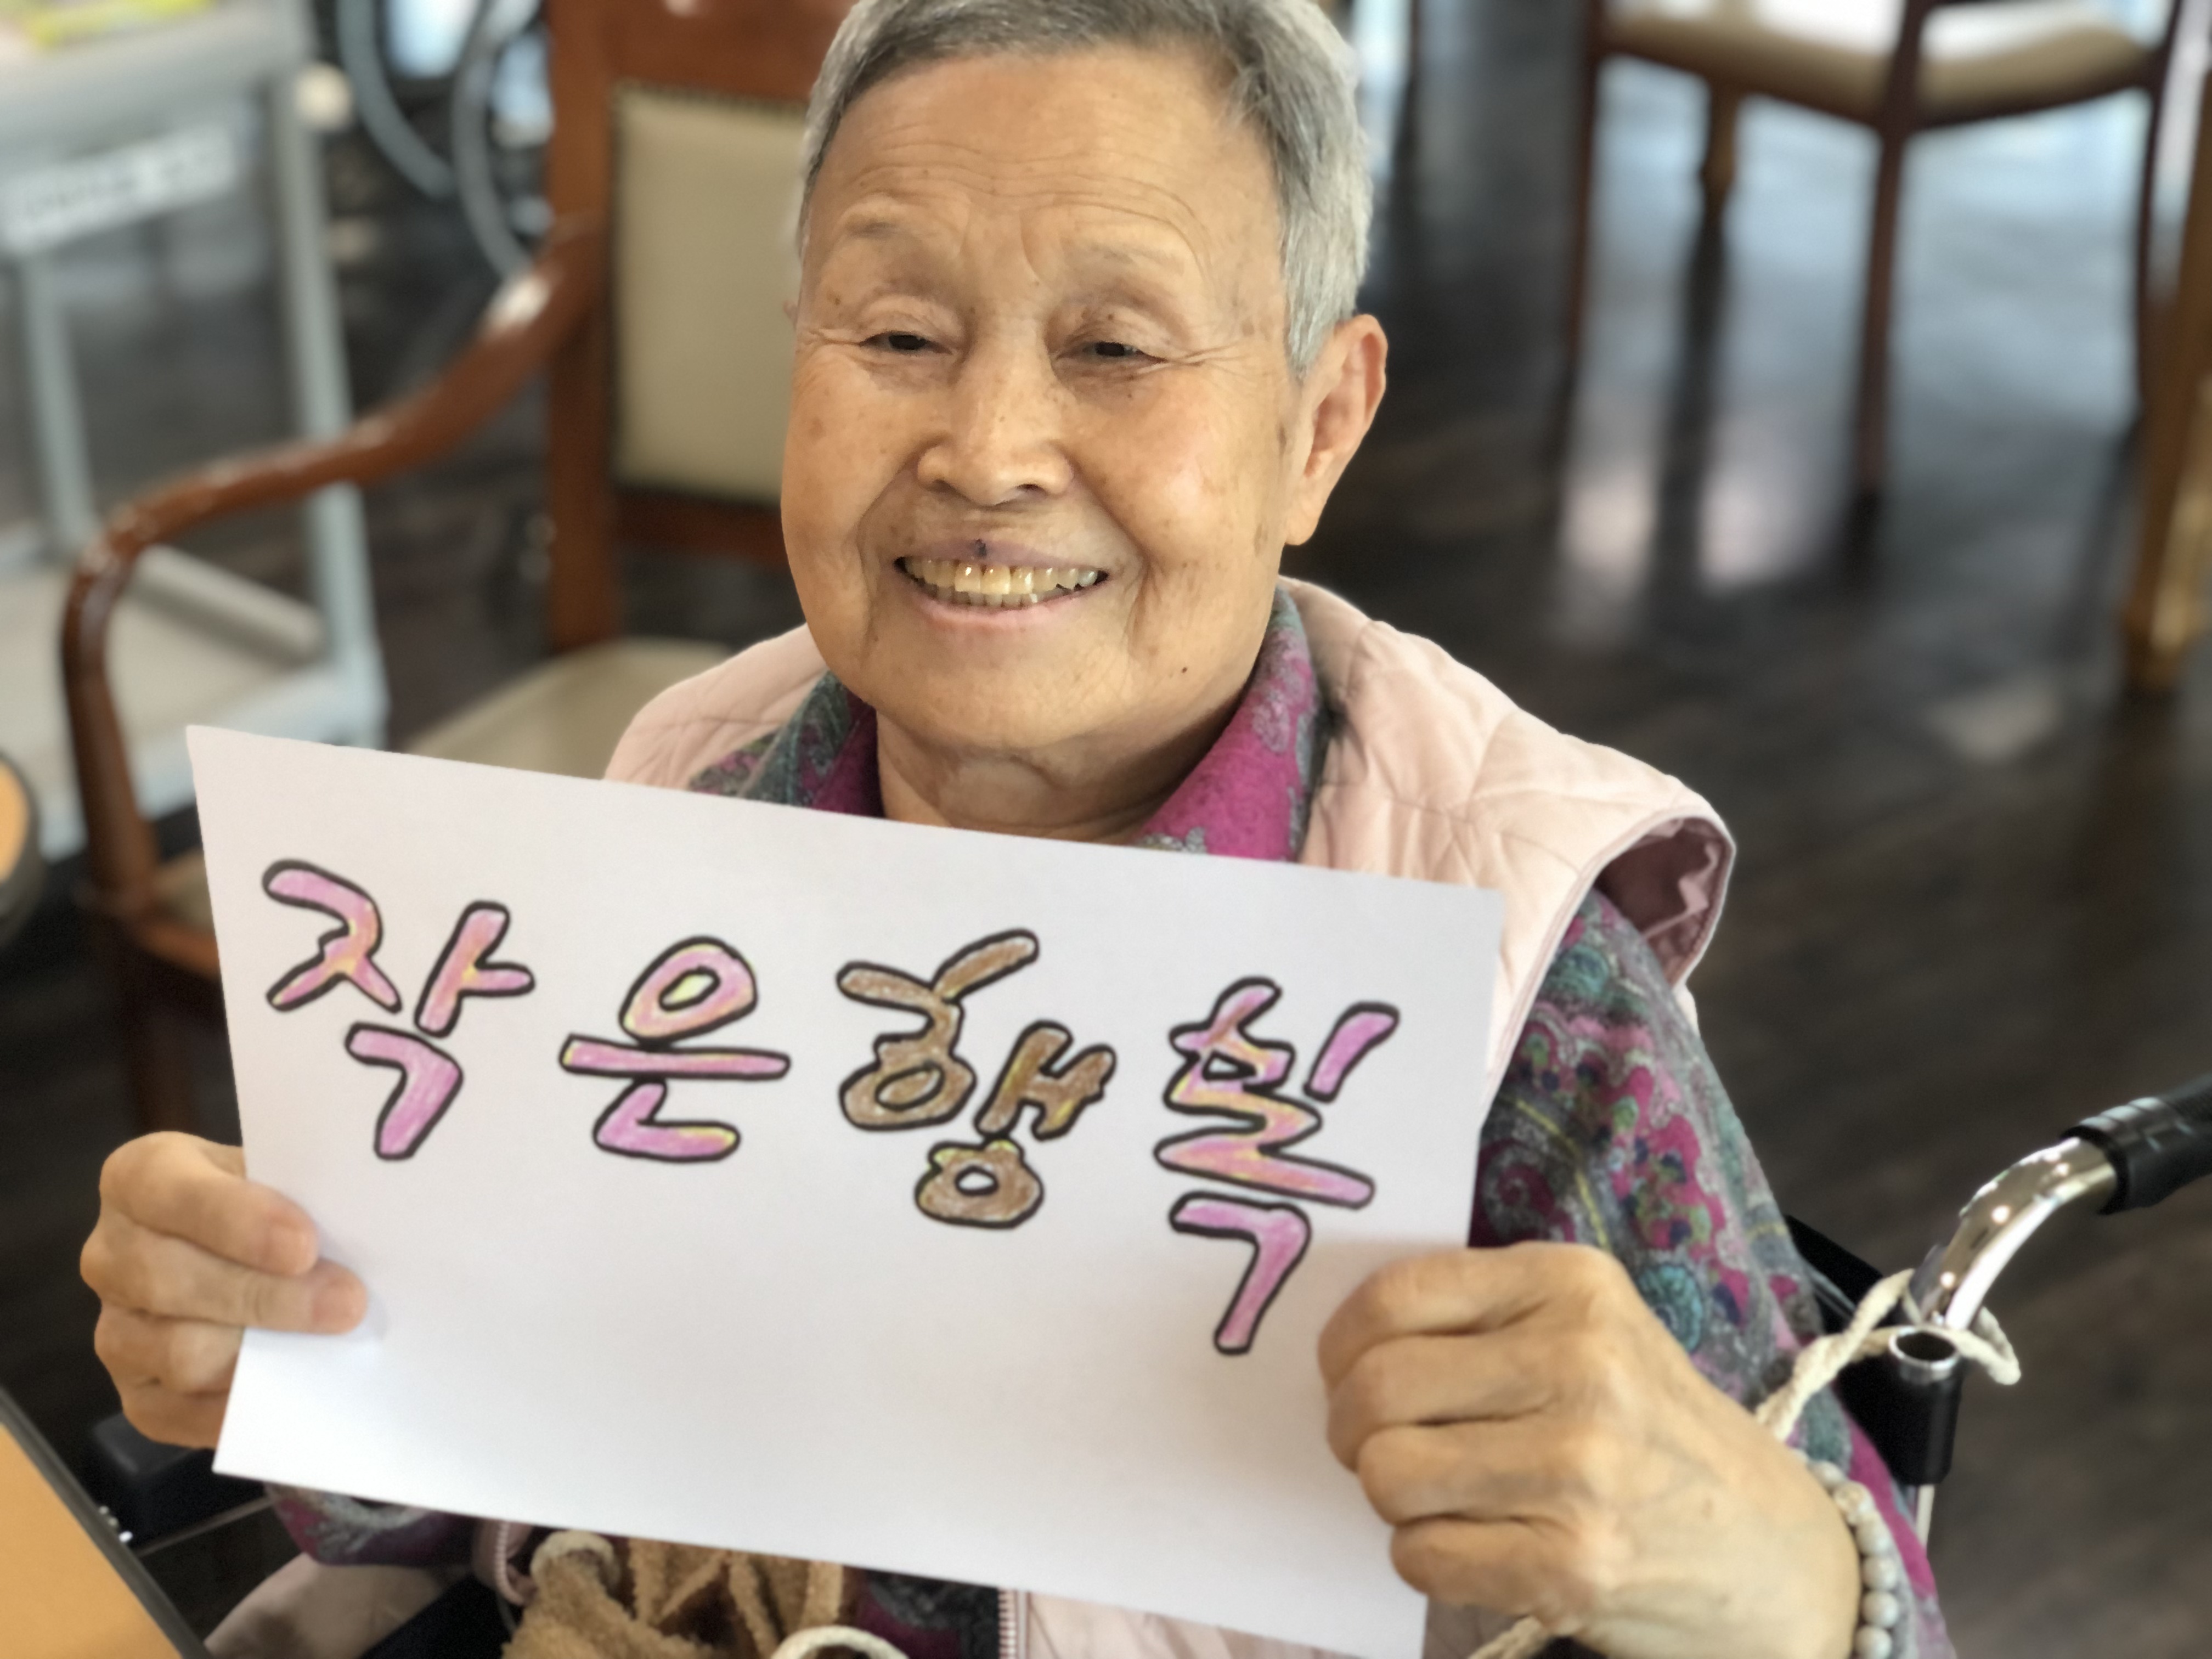 작은행복